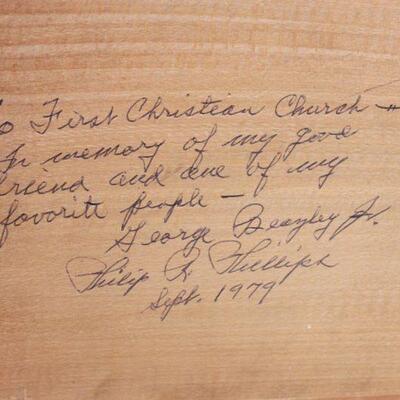 to First Christian Church —
In memory of my good
friend and one of my
favorite people —
George Beazley Jr.
Philip R. Phillips
Sept. 1979